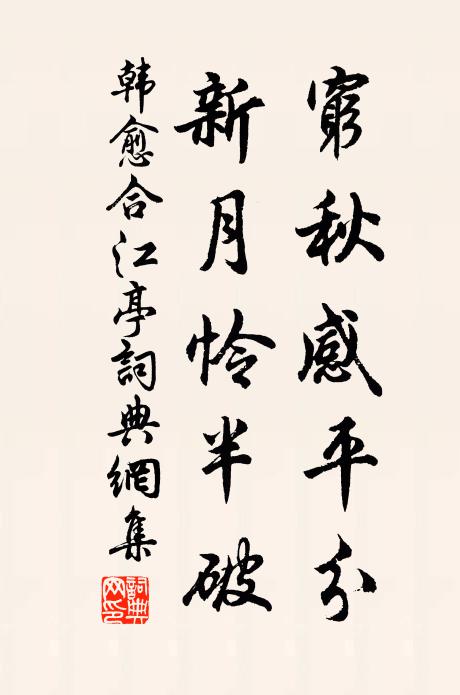 窮秋感平分
新月怜半破
韩愈合江亭詞典網集
詞典網印